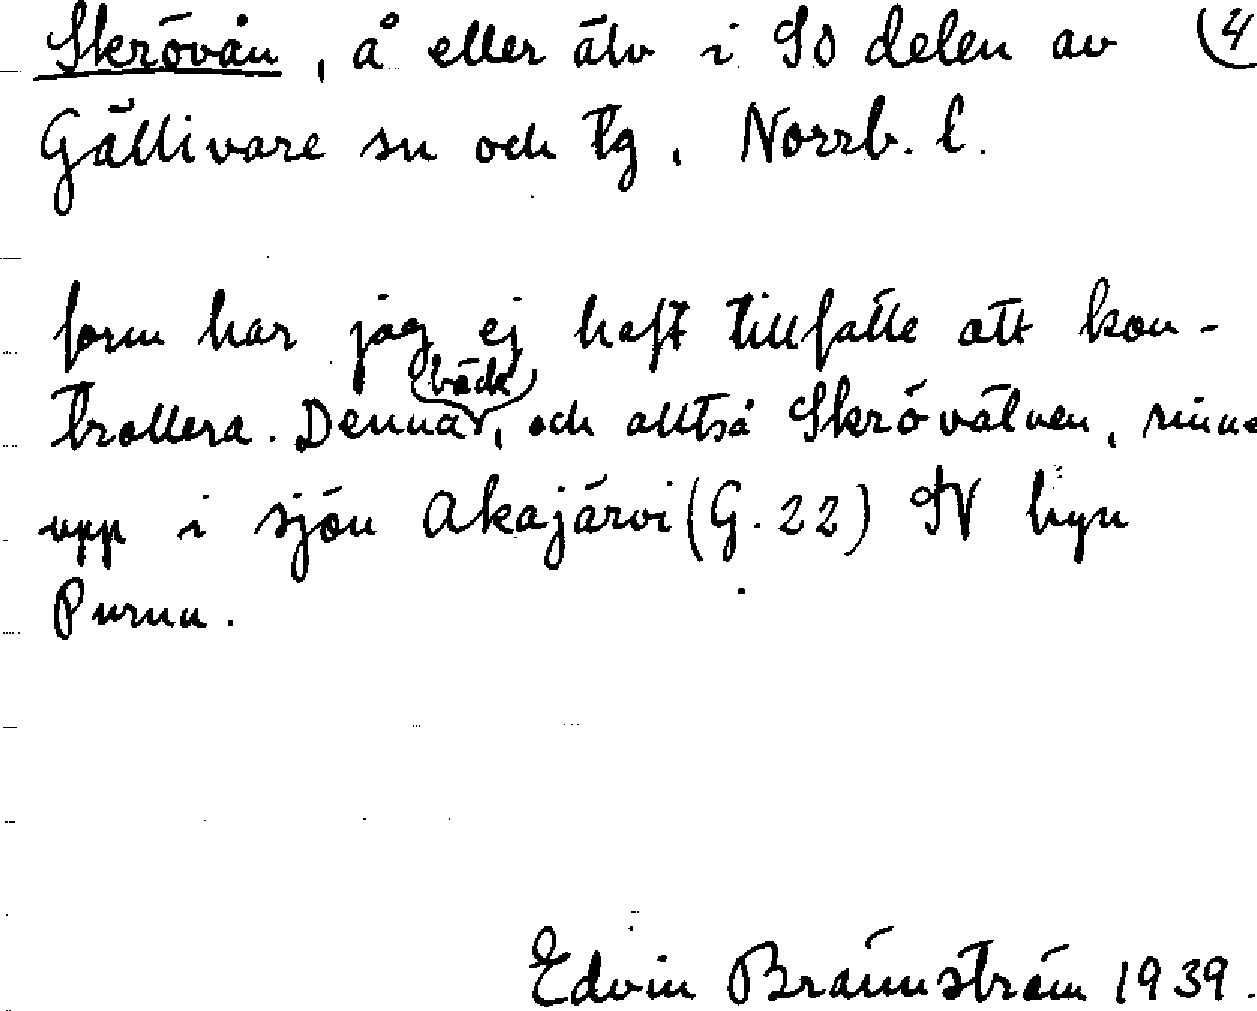 Skrövån, å eller älv i SO delen av (4
Gällivare sn och tg, Norrb. l.
form har jag ej haft tillfälle att kon-
trollera. Denna (bäck), och alltså Skrövälven, rinne
upp i sjön Akajärvi (G. 22) SV byn
Purnu.
Edvin Brännström 1939.